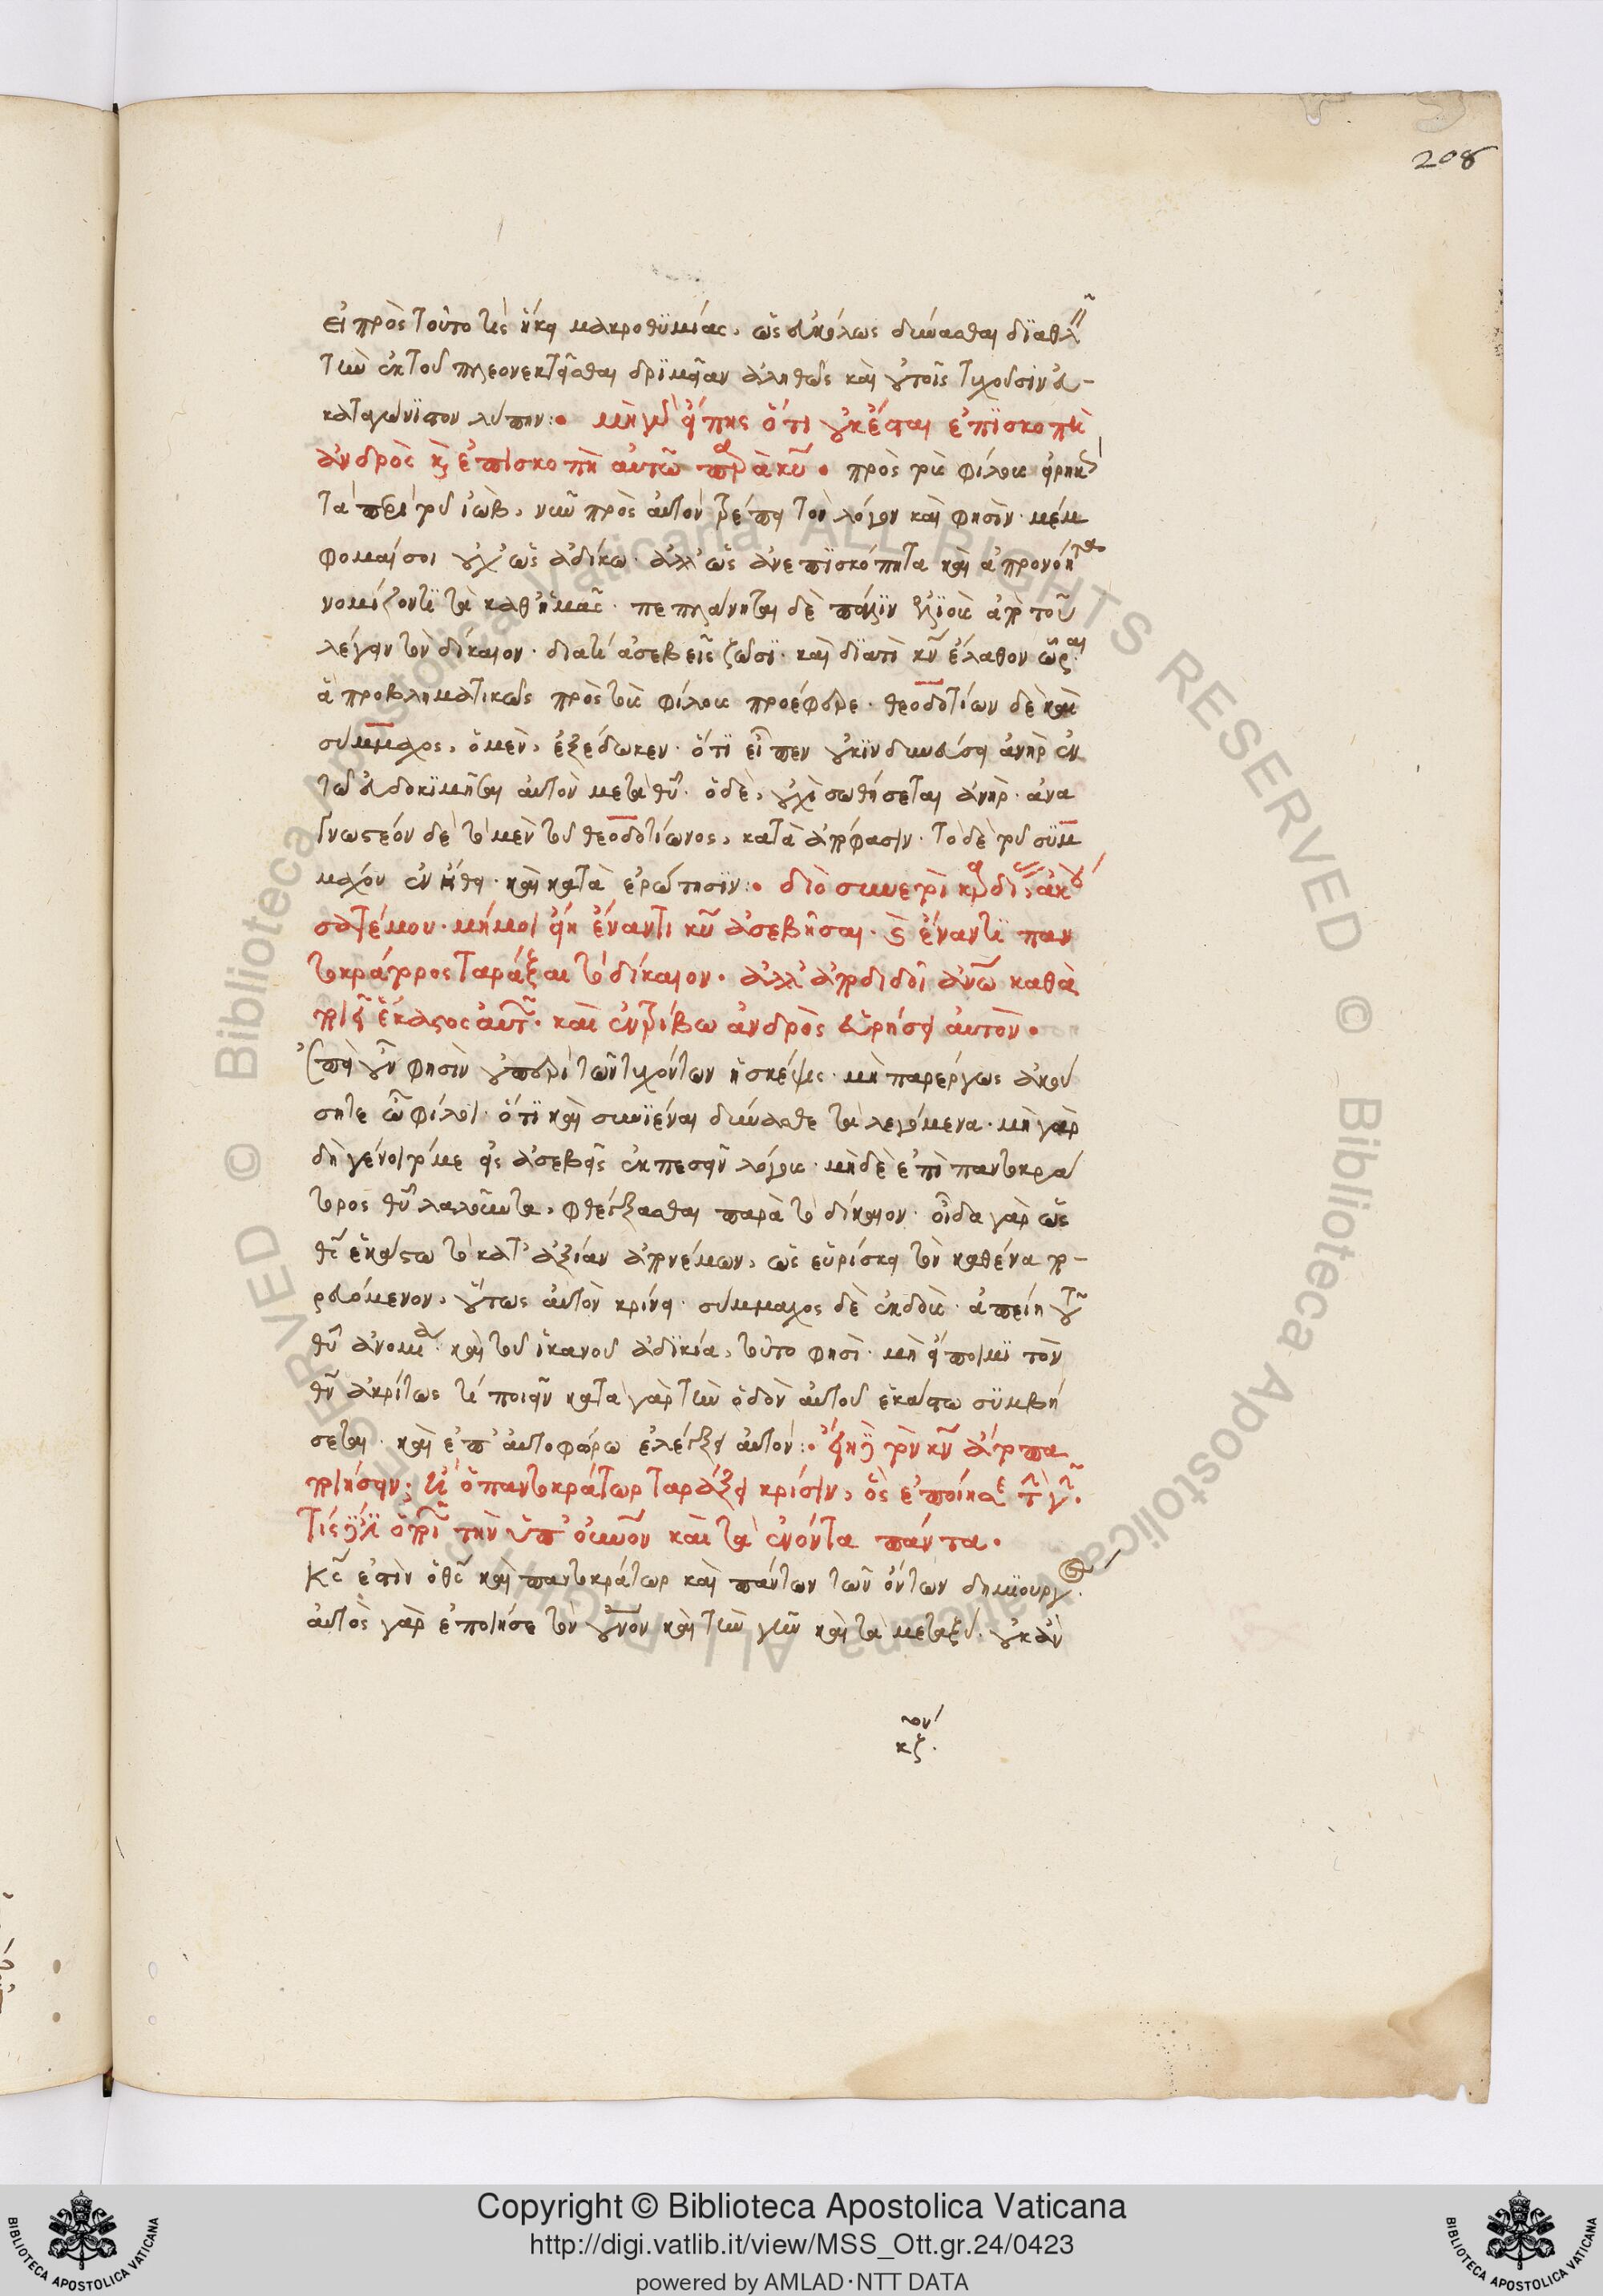 208
εἰ πρὸς τοῦτό τις ἥκει μακροθυμίας, ὡς εὐκόλως δύνασθαι διαθλεῖν
τὴν ἐκ τοῦ πλεονεκτεῖσθαι δριμεῖαν ἀληθῶς καὶ τοῖς τυχοῦσιν ἀ-
καταγώνιστον λύπην: μὴ γὰρ εἴπῃς ὅτι οὐκ ἔσται ἐπισκοπὴ
ἀνδρὸς καὶ ἐπισκοπὴ αὐτῶ παρὰ κυ. πρὸς τοὺς φίλους εἰρηκὼς
τὰ περὶ τοῦ ἰώβ, νῦν πρὸς αὐτὸν τρέπει τὸν λόγον καὶ φησὶν. μέμ
φομαί σοι οὐχ ὡς ἀδίκω. ἀλλ' ὡς ἀνεπισκόπητα καὶ ἀπρονόητα
νομίζοντι τὰ καθ' ἡμᾶς. πεπλάνηται δὲ πάλιν ἐλιοὺς ἀπὸ τοῦ
λέγειν τὸν δίκαιον. διατί ἀσεβεῖς ζῶσι. καὶ διατί κν ἔλαθον ὧραι.
ἃ προβληματικῶς πρὸς τοὺς φίλους προέφερε. θεοδοτίων δὲ καὶ
σύμμαχος, ὁ μὲν, ἐξέδωκεν. ὅτι εἶπεν οὐ κινδυνεύσει ἀνὴρ ἐν
τῶ εὐδοκιμῆσαι αὐτὸν μετὰ θυ. ὁ δὲ, οὐχὶ σωθήσεται ἀνήρ. ἀνα
γνωστέον δὲ τὸ μὲν τοῦ θεοδοτίωνος, κατὰ ἀπόφασιν. τὸ δὲ τοῦ συμ
μάχου ἐν ἤθει καὶ κατὰ ἐρώτησιν: διὸ συνετοὶ καρδίας ἀκού
σατέ μου. μή μοι εἴη ἔναντι κυ ἀσεβῆσαι. καὶ ἔναντι παν
τοκράτορος ταράξαι τὸ δίκαιον. ἀλλ' ἀποδιδοῖ ἀνω καθὰ
ποιεῖ ἕκαστος αὐτῶν. καὶ ἐν τρίβω ἀνδρὸς εὑρήσει αὐτόν.
ἐπεὶ οὖν φησὶν οὐ περὶ τῶν τυχόντων ἡ σκέψις. μὴ παρέργως ἀκού
σητε ὦ φίλοι. ὅτι καὶ συνιέναι δύνασθε τὰ λεγόμενα. μὴ γὰρ
δὴ γένοιτό με εἰς ἀσεβεῖς ἐκπεσεῖν λόγους. μηδὲ ἐπὶ παντοκρά
τορος θυ λαλοῦντα, φθέγξασθαι παρὰ τὸ δίκαιον. οἶδα γὰρ ὡς
θς ἑκάστω τὸ κατ' ἀξίαν ἀπονέμων, ὡς εὑρίσκει τὸν καθένα πο-
ρευόμενον, οὕτως αὐτὸν κρίνει. σύμμαχος δὲ ἐκδοὺς. ἀπείη τοῦ
θυ ἀνομία. καὶ τοῦ ἱκανοῦ ἀδικία, τοῦτο φησὶ. μὴ εἴποιμι τὸν
θν ἀκρίτως τί ποιεῖν κατὰ γὰρ τὴν ὁδὸν αὐτοῦ ἑκάστω συμβή
σεται. καὶ ἐπ' αὐτοφώρω ἐλέγξει αὐτόν: οἴῃ δὲ τὸν κν ἄτοπα
ποιήσειν; ἢ ὁ παντοκράτωρ ταράξει κρίσιν, ὃς ἐποίησε τὴν γῆν.
τίς δέ ἐστιν ὁ ποιῶν τὴν ὑπ' οὐνον καὶ τὰ ἐνόντα πάντα.
Κς ἐστὶν ὁ θς καὶ παντοκράτωρ καὶ πάντων τῶν ὄντων δημιουργός.
αὐτὸς γὰρ ἐποίησε τὸν οὐνον καὶ τὴν γῆν καὶ τὰ μεταξύ. οὐκ ἂν
κζ.
Copyright © Biblioteca Apostolica Vaticana
http://digi.vatlib.it/view/MSS_Ott.gr.24/0423
powered by AMLAD·NTT DATA